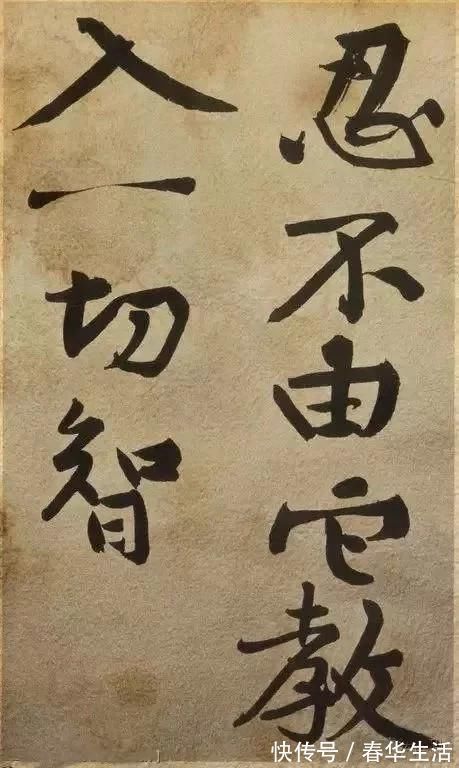 忍不由它教
入一切智
快传号/春华生活